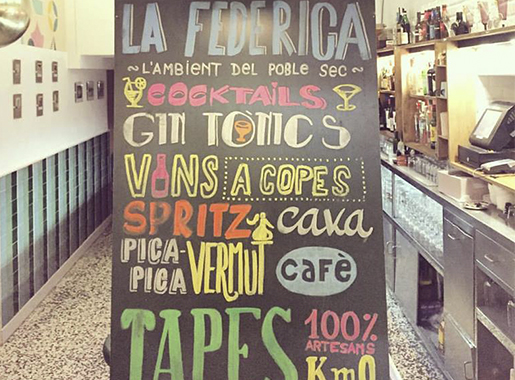 LA FEDERICA
~ L'AMBIENT DEL POBLE SEC ~
COCKTAILS
GIN TONICS
VINS A COPES
SPRITZ CAVA
PICA-PICA VERMUT CAFÈ
TAPES 100% ARTESANS
Km0